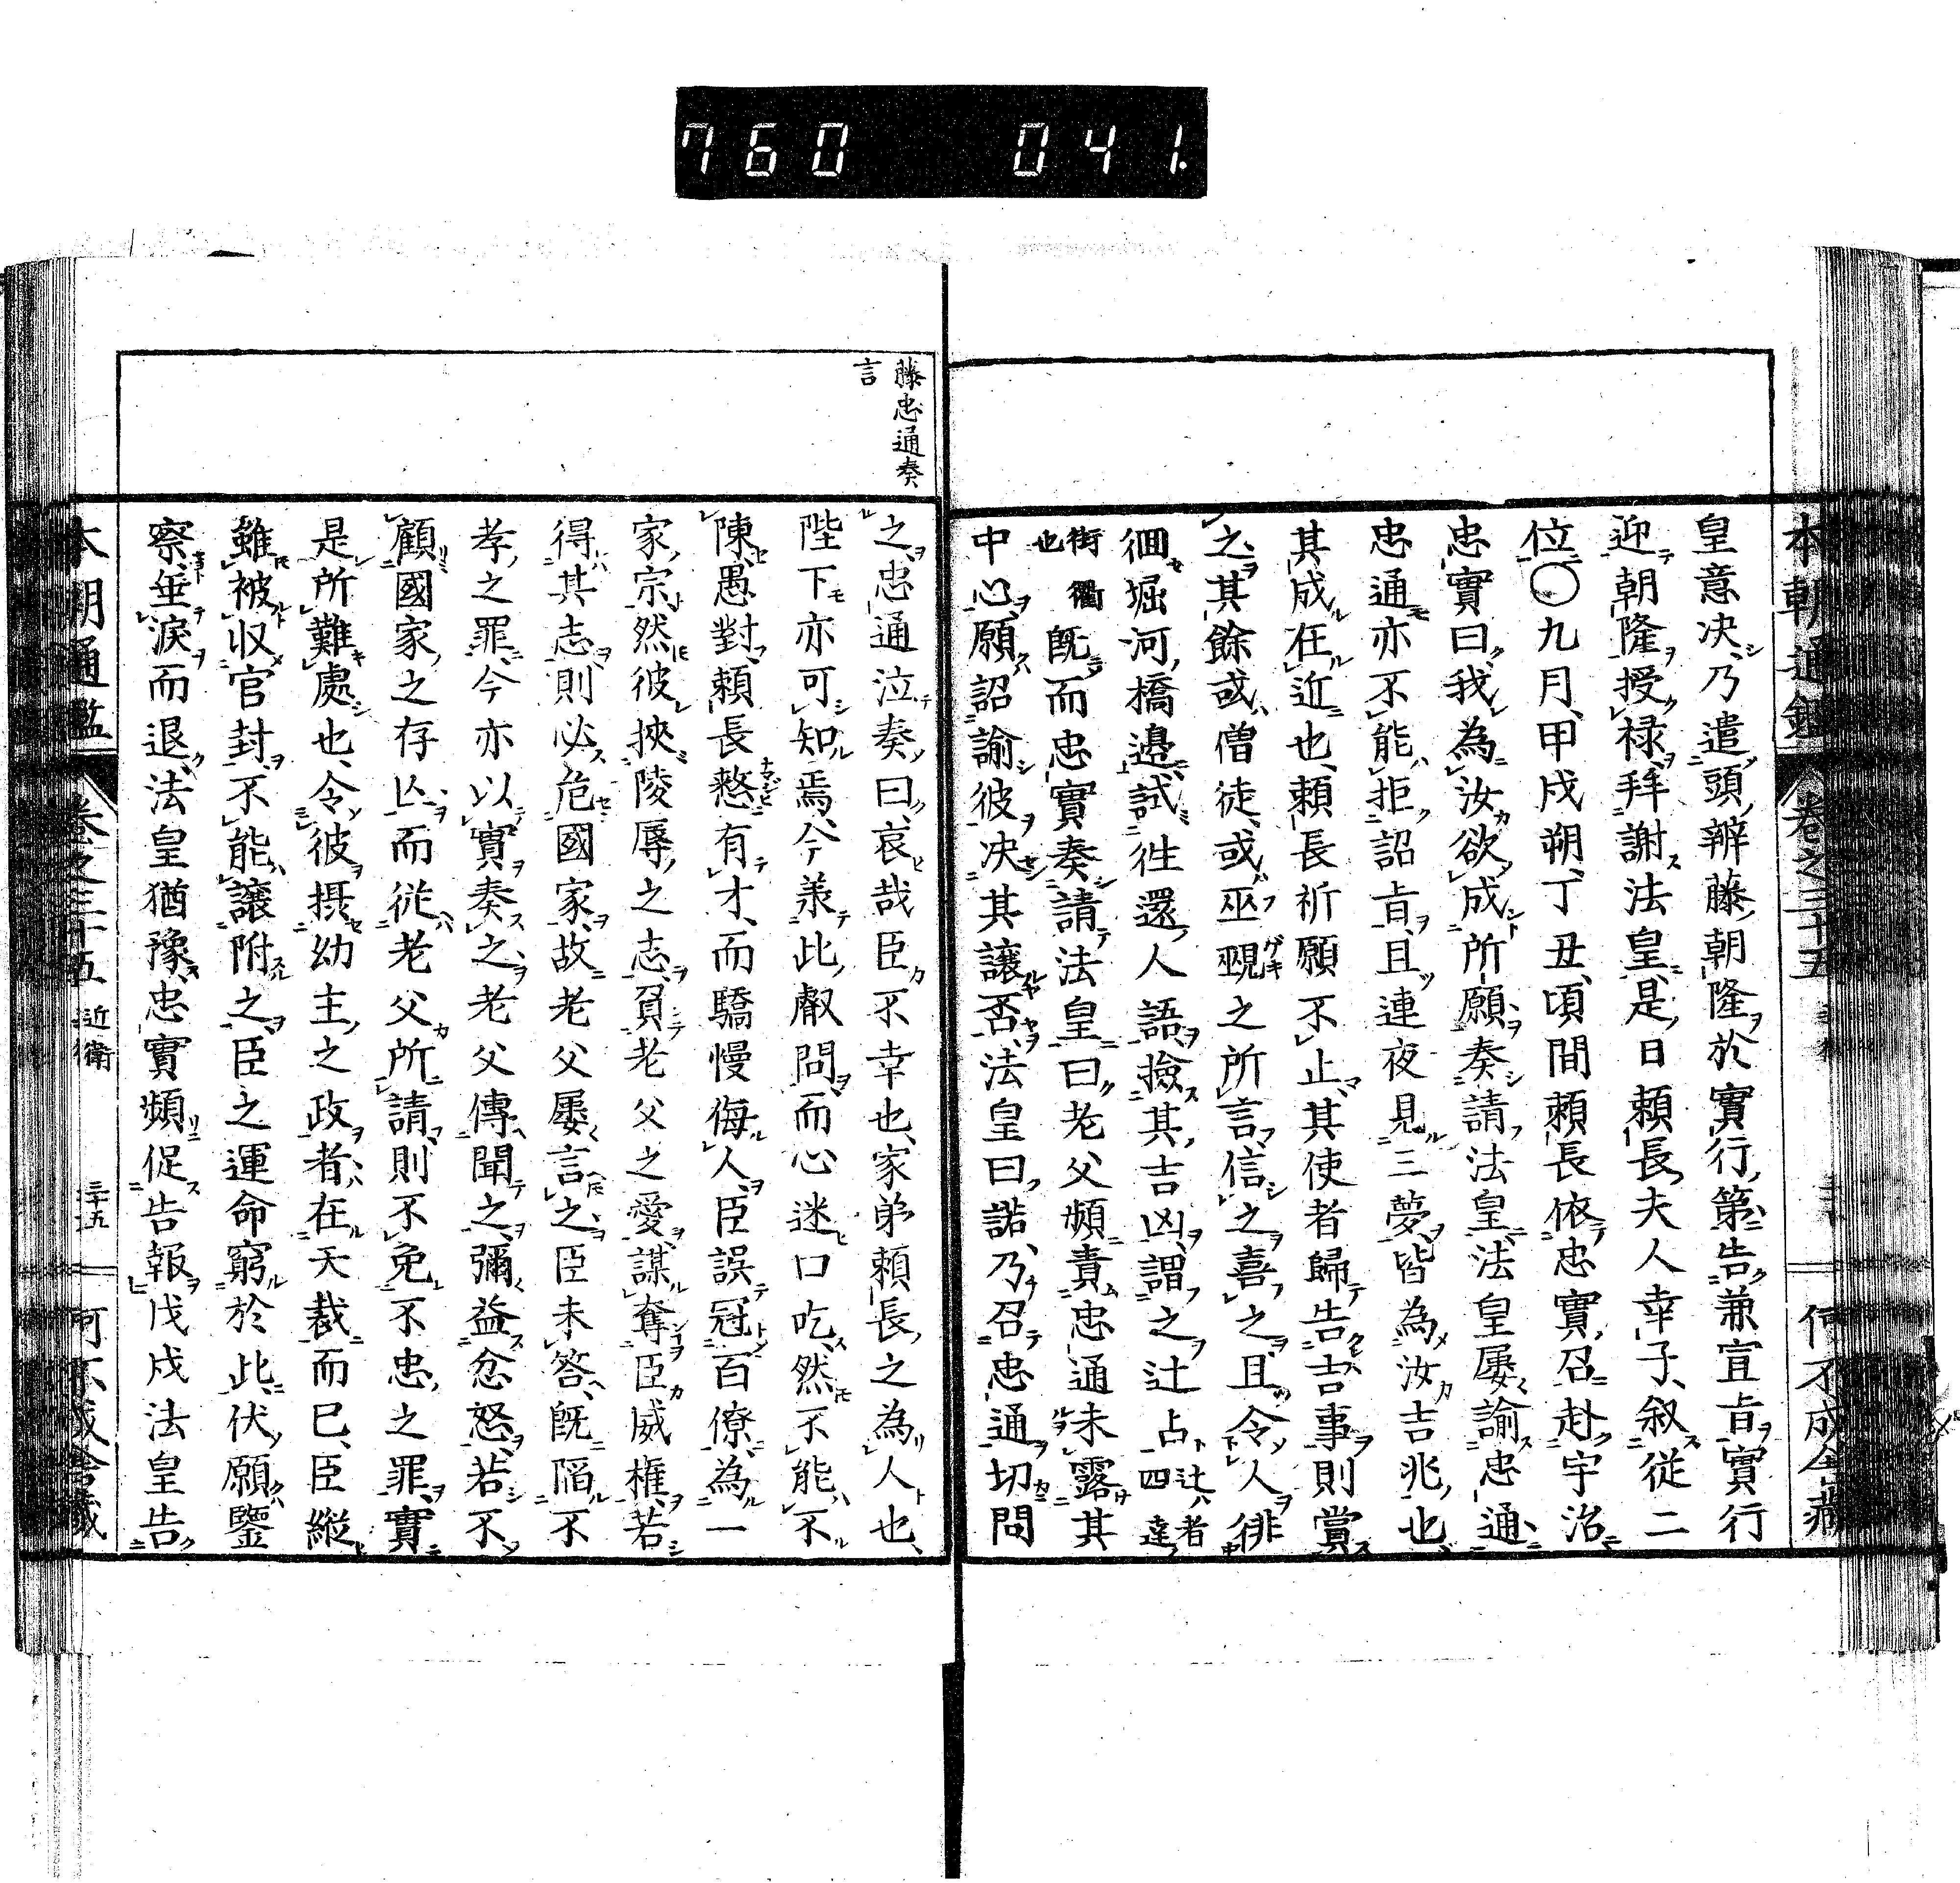 760 041.
本朝通鑑 卷之三十五 何不成舎藏
皇意决乃遣頭辨藤朝隆於實行第告兼宣旨實行
迎朝隆授禄拜謝法皇是日頼長夫人幸子叙從二
位〇九月甲戌朔丁丑頃間頼長依忠實召赴宇治
忠實曰我為汝欲成所願奏請法皇法皇屡諭忠通
忠通亦不能拒詔旨且連夜見三夢皆為汝吉兆也
其成在近也頼長祈願不止其使者歸告吉事則賞
之其餘或僧徒或巫覡之所言信之喜之且令人徘
徊堀河橋邊試徃還人語撿其吉凶謂之辻占辻者四達
街衢也既而忠實奏請法皇曰老父頻責忠通未露其
中心願詔諭彼决其讓否法皇曰諾乃召忠通切問
藤忠通奏
言
之忠通泣奏曰哀哉臣不幸也家弟頼長之為人也
陛下亦可知焉今羕此叡問而心迷口吃然不能不
陳愚對頼長憖有才而驕慢侮人臣誤冠百僚為一
家宗然彼挾陵辱之志負老父之愛謀奪臣威權若
得其志則必危國家故老父屡言之臣未答既陥不
孝之罪今亦以實奏之老父傳聞之彌益忿怒若不
顧國家之存亾而從老父所請則不免不忠之罪實
是所難處也令彼摂幼主之政者在天裁而已臣縦
雖被収官封不能讓附之臣之運命窮於此伏願鑒
察垂淚而退法皇猶豫忠實頻促告報戊戌法皇告
本朝通鑑 卷之三十五 近衛 三十五 何不成舎藏